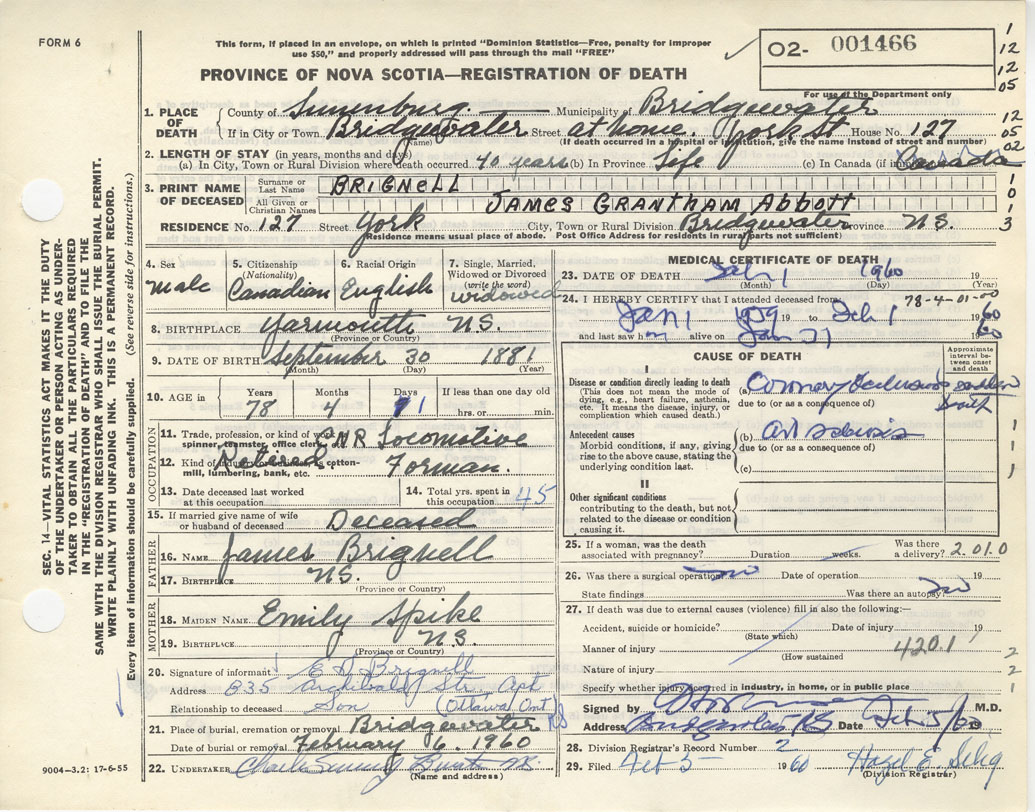 FORM 6
This form, if placed in an envelope, on which is printed "Dominion Statistics—Free, penalty for improper
use $50," and properly addressed will pass through the mail "FREE"
O2- 001466
For use of the Department only
PROVINCE OF NOVA SCOTIA—REGISTRATION OF DEATH
1 12 12 05
12 05 02 1 0 1 3
1. PLACE OF DEATH
County of Lunenburg. Municipality of Bridgewater
If in City or Town Bridgewater Street at home. York St House No. 127
(Name) (If death occurred in a hospital or institution, give the name instead of street and number)
2. LENGTH OF STAY (in years, months and days)
(a) In City, Town or Rural Division where death occurred 40 years (b) In Province Life (c) In Canada (if immigrant) Canada
3. PRINT NAME OF DECEASED
Surname or Last Name BRIGNELL
All Given or Christian Names JAMES GRANTHAM ABBOTT
RESIDENCE No. 127 Street York City, Town or Rural Division Bridgewater Province N.S.
Residence means usual place of abode. Post Office Address for residents in rural parts not sufficient)
4. Sex male
5. Citizenship (Nationality) Canadian
6. Racial Origin English
7. Single, Married, Widowed or Divorced (write the word) widowed
8. BIRTHPLACE Yarmouth N.S.
(Province or Country)
9. DATE OF BIRTH September 30 1881
(Month) (Day) (Year)
10. AGE in Years 78 Months 4 Days 1 If less than one day old hrs. or min.
OCCUPATION
11. Trade, profession, or kind of work as spinner, teamster, office clerk, etc. CNR Locomotive
12. Kind of industry or business, as cotton-mill, lumbering, bank, etc. Retired Forman.
13. Date deceased last worked at this occupation
14. Total yrs. spent in this occupation 45
15. If married give name of wife or husband of deceased Deceased
FATHER
16. NAME James Brignell
17. BIRTHPLACE N.S.
(Province or Country)
MOTHER
18. MAIDEN NAME Emily Spike
19. BIRTHPLACE N.S.
(Province or Country)
20. Signature of informant E Brignell
Address B35 Archibald Str. Apt
Relationship to deceased Son (Ottawa Ont)
21. Place of burial, cremation or removal Bridgewater NS
Date of burial or removal February 6, 1960
22. UNDERTAKER Charles
(Name and address)
9004—3.2: 17-6-55
SEC. 14.—VITAL STATISTICS ACT MAKES IT THE DUTY
OF THE UNDERTAKER OR PERSON ACTING AS UNDER-
TAKER TO OBTAIN ALL THE PARTICULARS REQUIRED
IN THE "REGISTRATION OF DEATH" AND TO FILE THE
SAME WITH THE DIVISION REGISTRAR WHO SHALL ISSUE THE BURIAL PERMIT.
WRITE PLAINLY WITH UNFADING INK. THIS IS A PERMANENT RECORD.
Every item of information should be carefully supplied. (See reverse side for instructions.)
MEDICAL CERTIFICATE OF DEATH
23. DATE OF DEATH Feb 1 1960 19
(Month) (Day) (Year)
24. I HEREBY CERTIFY that I attended deceased from 78-4-01-00
Jan 1 1959 19 to Feb 1 1960
and last saw h m alive on Jan 31 1960
CAUSE OF DEATH
Approximate interval between onset and death
I
Disease or condition directly leading to death
(This does not mean the mode of
dying, e.g., heart failure, asthenia,
etc. It means the disease, injury, or
complication which caused death.)
(a) Coronary Occlusion sudden death
due to (or as a consequence of)
Antecedent causes
Morbid conditions, if any, giving
rise to the above cause, stating the
underlying condition last.
(b) Art Sclerosis
due to (or as a consequence of)
(c)
1 1 1
II
Other significant conditions
contributing to the death, but not
related to the disease or condition
causing it.
25. If a woman, was the death associated with pregnancy? Duration weeks. Was there a delivery? 2.01.0
26. Was there a surgical operation? no Date of operation 19
State findings Was there an autopsy? no
27. If death was due to external causes (violence) fill in also the following:—
Accident, suicide or homicide? Date of injury 19
(State which)
Manner of injury 4201 2
(How sustained
Nature of injury 2
Specify whether injury occurred in industry, in home, or in public place 1
Signed by M.D.
Address Bridgewater NS Date Feb 5/60
28. Division Registrar's Record Number 2
29. Filed Feb 5— 1960 Hazel E. Selig
(Division Registrar)